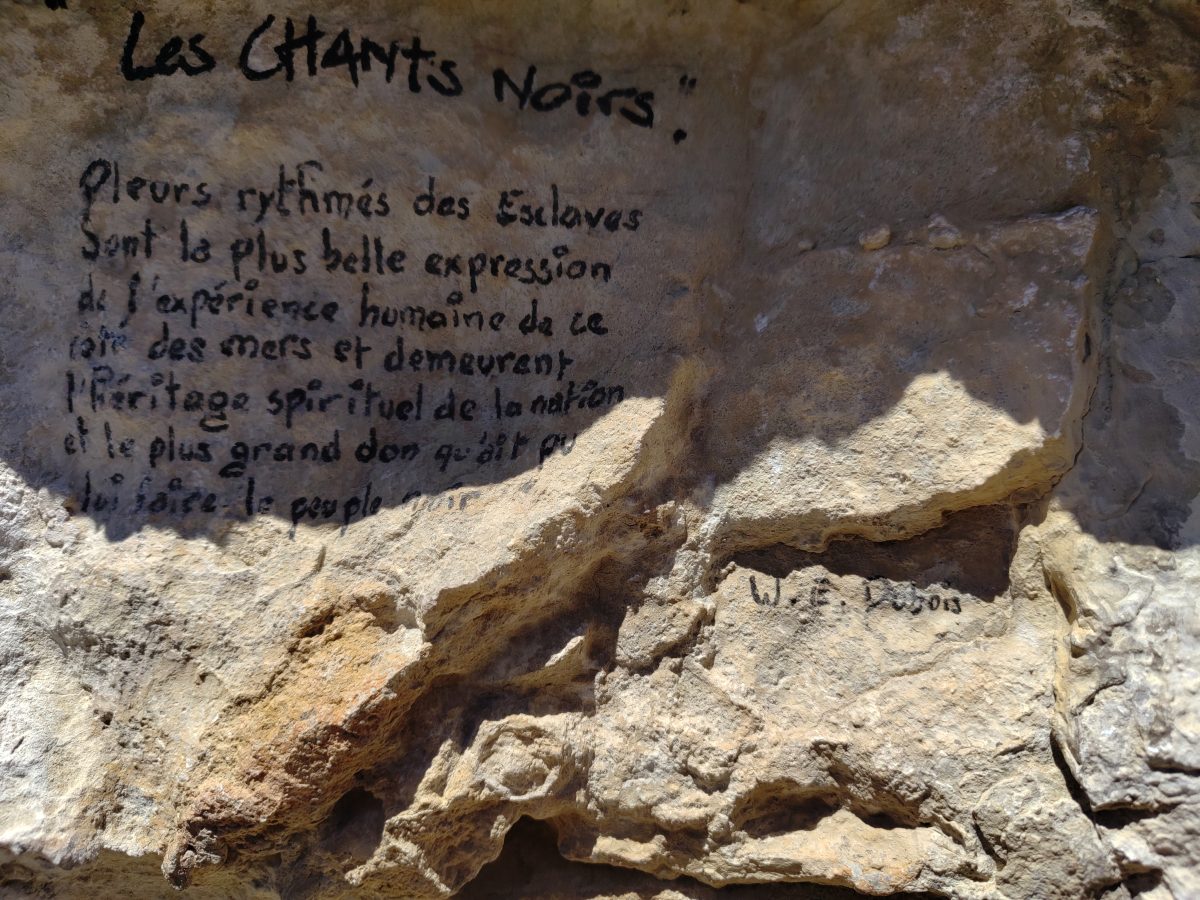 "Les CHANts Noirs".
Pleurs rythmés des Esclaves
sont la plus belle expression
de l'expérience humaine de ce
côté des mers et demeurent
l'héritage spirituel de la nation
et le plus grand don qu'ait pu
lui faire le peuple noir
W. E. Dubois